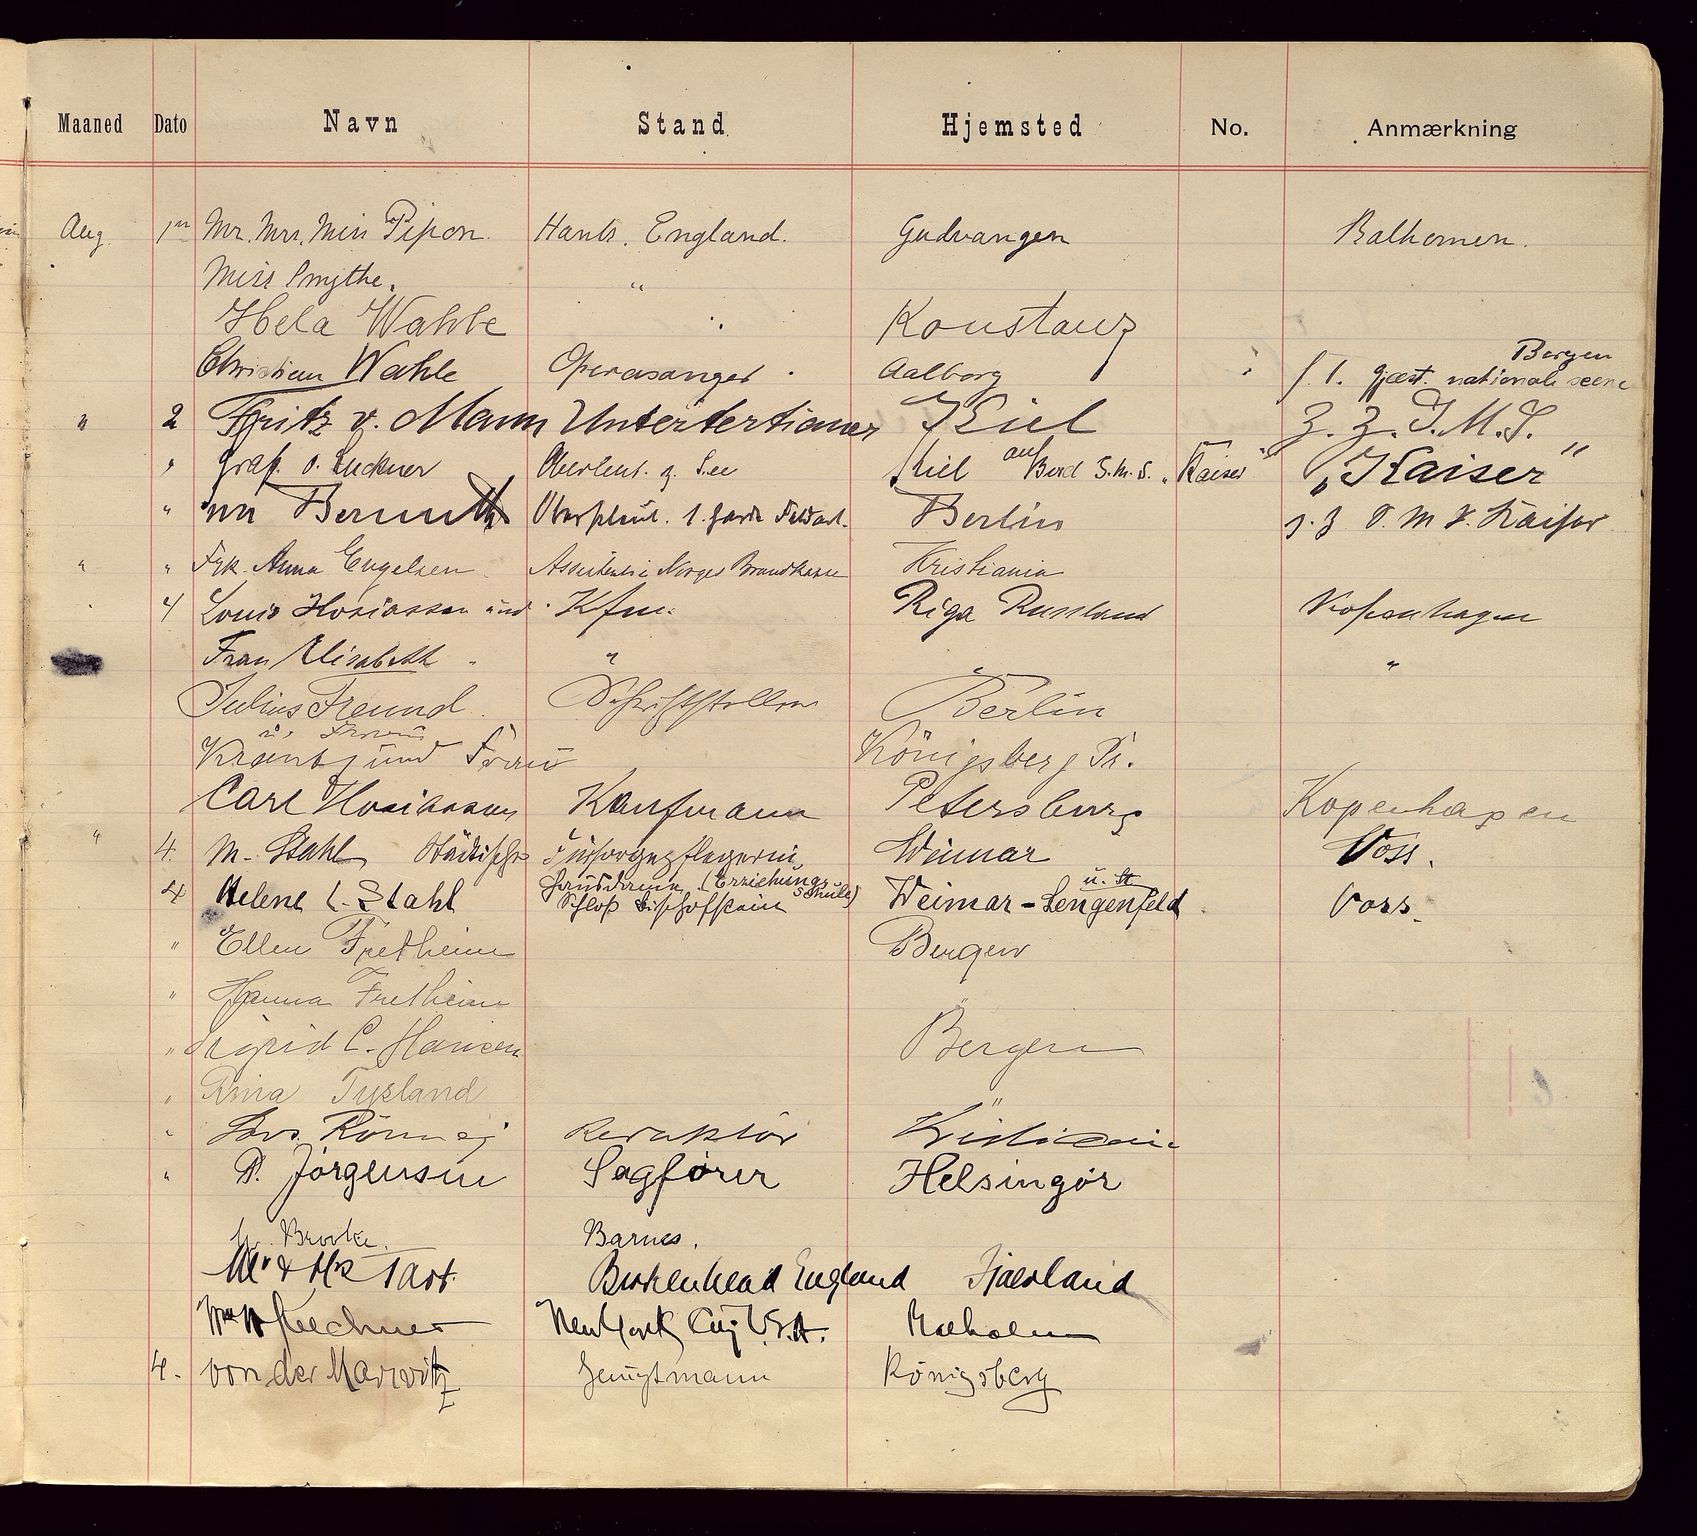 Maaned Dato Navn Stand Hjemsted No. Anmærkning
Aug. 1ste Mr. Mrs. Miss Pipon. Hants. England. Gudvangen Balhomen.
Miss Smythe. "
Hela Wahle Konstanz
Christian Wahle Operasanger Aalborg f. t. gjæst. nationale scene Bergen
" 2 Fritz v. Mann Untertertianer Kiel z. Z. S. M. S.
" Graf. v. Luckner Oberleut. z. See Kiel an Bord S. M. S. „Kaiser" „Kaiser"
" von Bernuth Berlin z. Z S. M. S. Kaiser
" " Frk. Anna Engelsen Assistent i Norges Brandkasse Kristiania
4 Louis Hosiasson und Kfm. Riga Russland Kopenhagen
Frau Elisabeth " "
Julius Freund Schriftsteller Berlin
u.
Krantz und Frau Königsberg Pr.
Carl Hosiasson Kaufmann Petersburg Kopenhagen
" 4. M. Stahl Städtische Fürsorgepflegerin Weimar Voss.
4 Helene L. Stahl Hausdame (Erziehungsschule) Schloß Bischofstein Weimar - Lengenfeld u. St. Voss.
" Ellen Fretheim Bergen
" Hanna Fretheim "
" Sigrid C. Hansen Bergen
" Tysland "
" Redaktör Kristiania
" P. Jörgensen Sagfører Helsingör
Brooke. Barnes.
Mr & Mrs Tart. Birkenhead England Fjaerland
New York City U.S.A. Balholm
4. von der Marwitz Königsberg